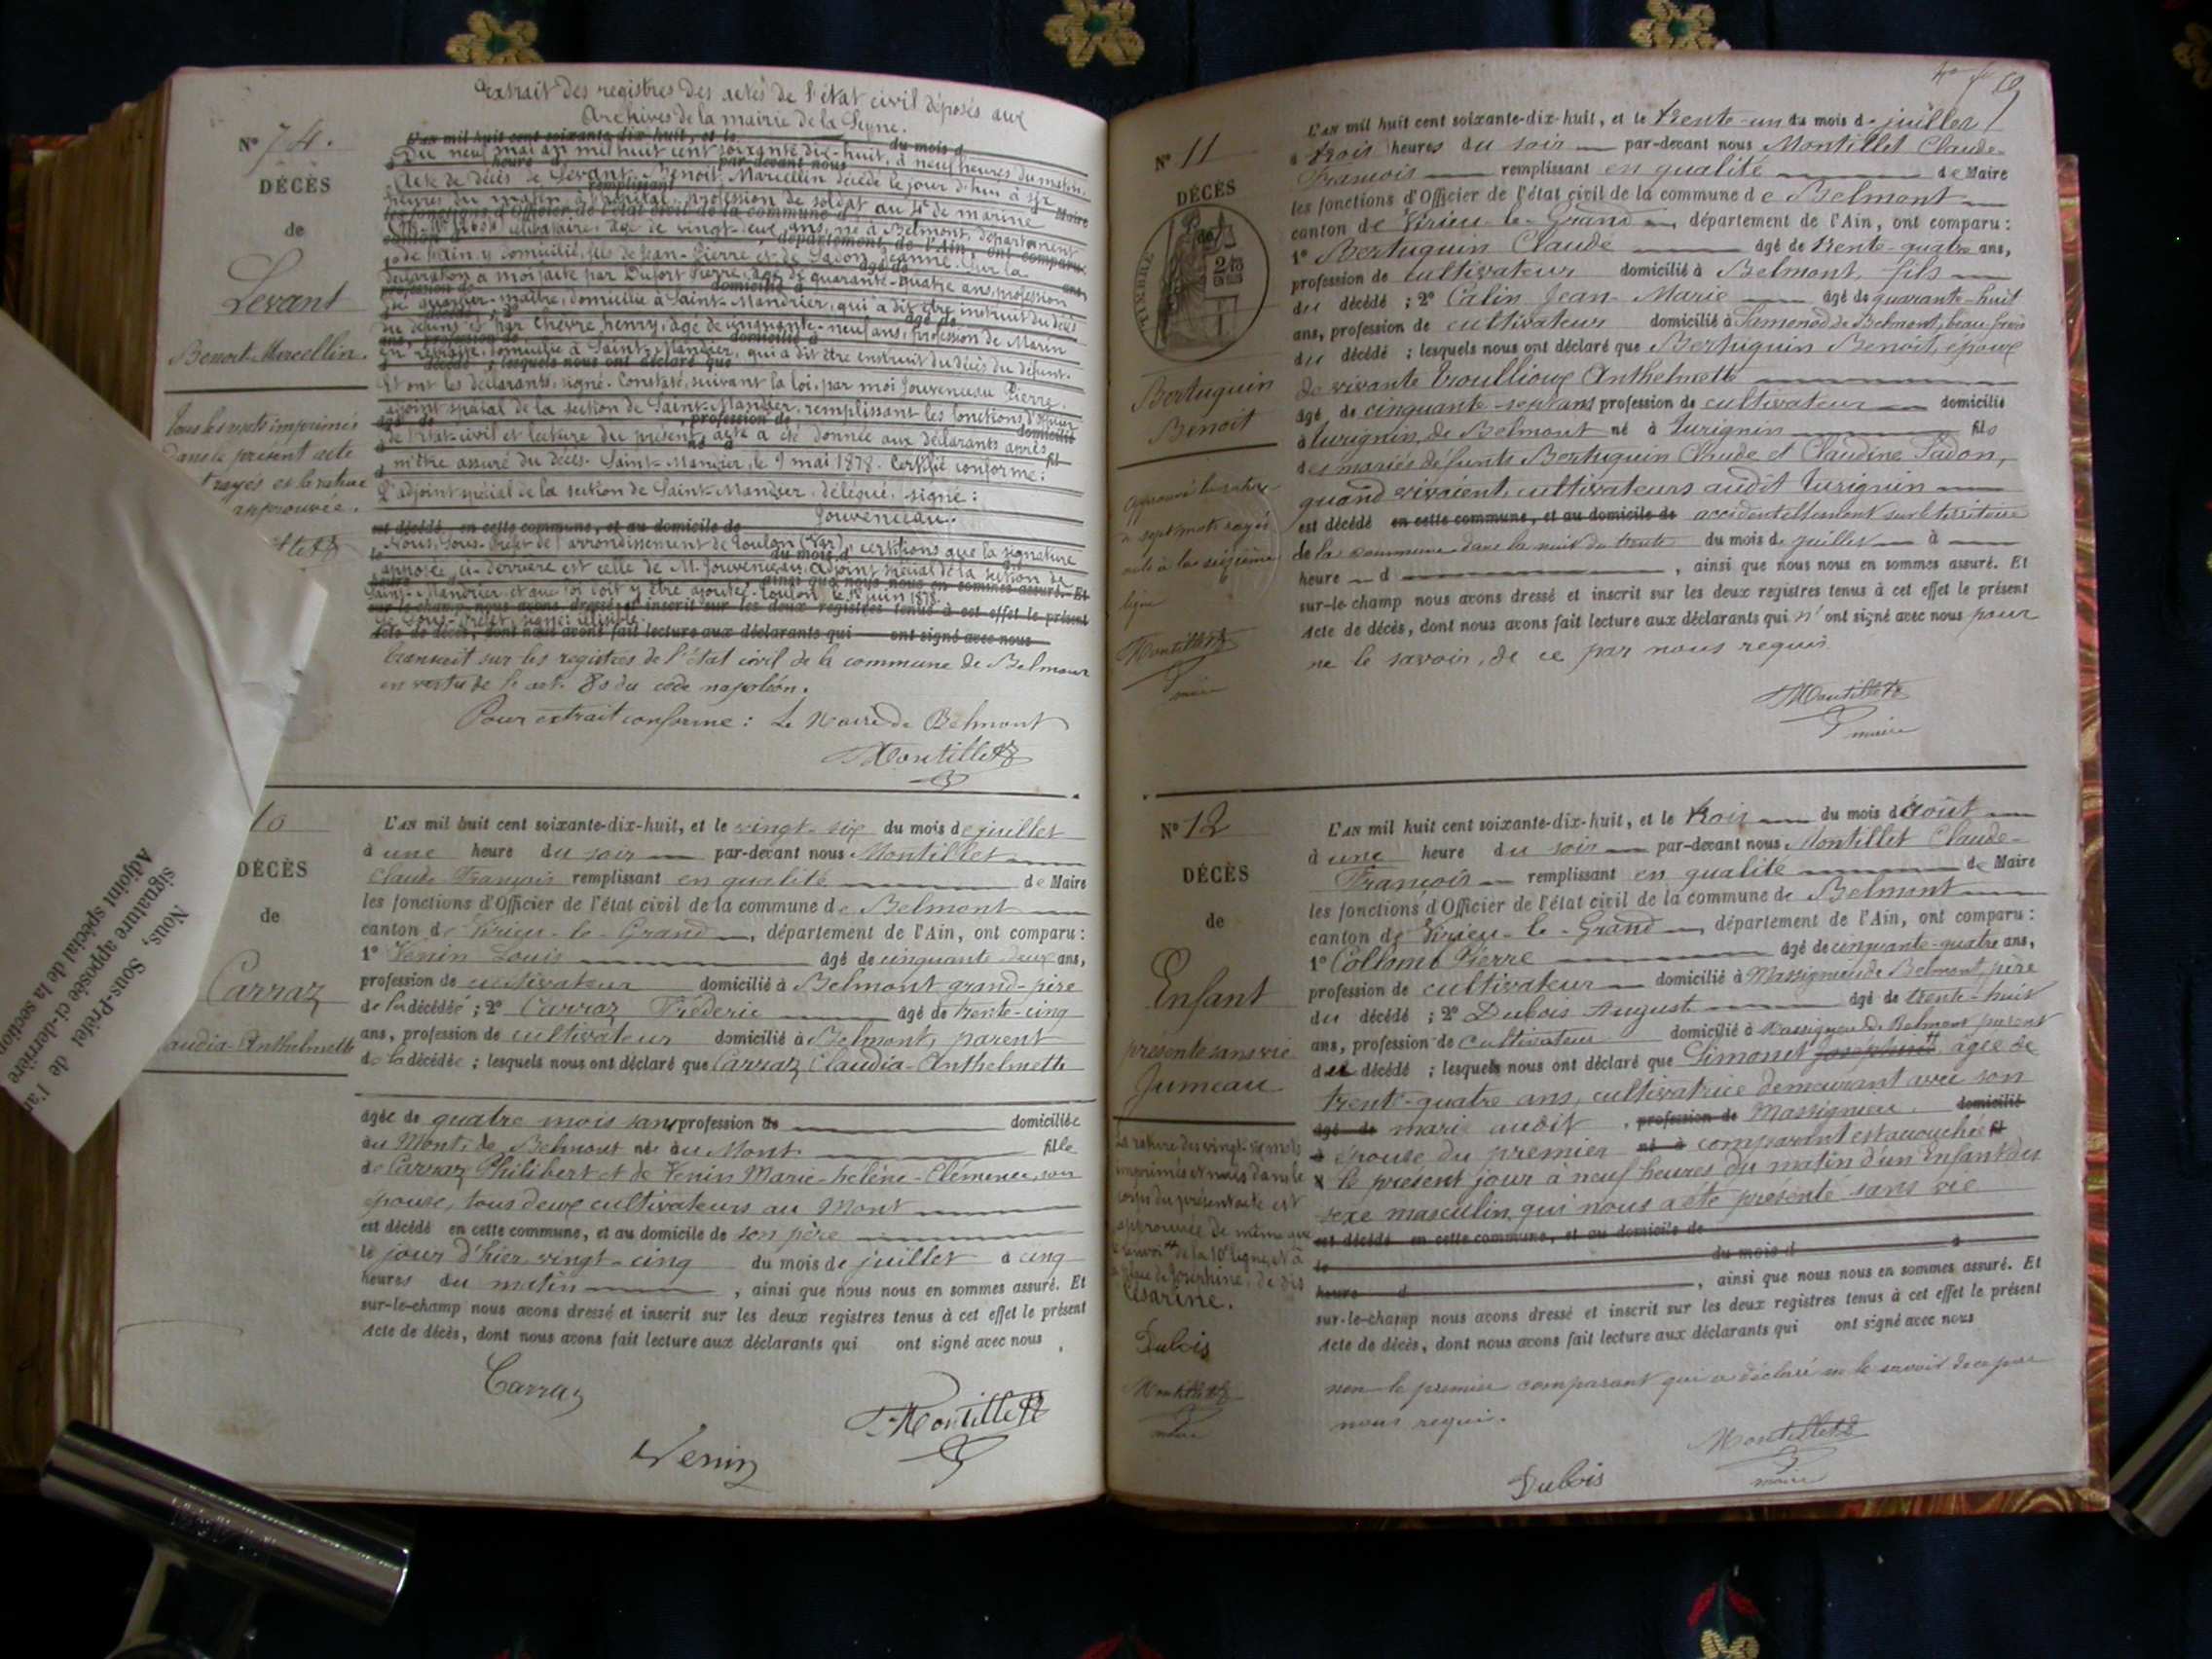 Extrait des registres des actes de l'état civil déposés aux
Archives de la mairie de la Seyne.
N° 74.
DÉCÈS
de
Levant
Benoit Marcellin.
Tous les mots imprimés
dans le présent acte
rayés et la rature
approuvée.
L'AN mil huit cent soixante-dix-huit, et le du mois d
Du neuf mai an mil huit cent soixante dix-huit, à neuf heures du matin.
Acte de décès de Levant Benoit Marcellin décédé le jour d'hui à six
heures du matin à l'hôpital, profession de soldat au 4e de marine
célibataire, âgé de vingt-deux ans, né à Belmont, département
de l'Ain, y domicilié, fils de Jean-Pierre et de Jeanne. Sur la
déclaration à moi faite par Dufort Pierre, âgé de quarante-quatre ans, profession
de quartier-maître, domicilié à Saint-Mandrier, qui a dit être instruit du décès
du défunt et par Chèvre henry, âgé de cinquante-neuf ans, profession de Marin
en retraite, domicilié à Saint-Mandrier, qui a dit être instruit du décès du défunt.
Et ont les déclarants, signé. Constaté, suivant la loi, par moi Jouvenceau Pierre,
adjoint spécial de la section de Saint-Mandrier, remplissant les fonctions d'officier
de l'état-civil et lecture du présent acte a été donnée aux déclarants après
m'être assuré du décès. Saint-Mandrier, le 9 mai 1878. Certifié conforme:
L'adjoint spécial de la section de Saint-Mandrier, délégué, signé:
est décédé en cette commune, et au domicile de Jouvenceau.
Nous, Sous-Préfet de l'arrondissement de Toulon (Var), certifions que la signature
apposée ci-derrière est celle de M. Jouvenceau, adjoint spécial de la section de
Saint-Mandrier et que foi doit y être ajoutée. Toulon, le juin 1878.
Le Sous-Préfet, signé: illisible.
acte de décès, dont nous avons fait lecture aux déclarants qui ont signé avec nous
Transcrit sur les registres de l'état civil de la commune de Belmont
en vertu de l'art. 80 du code napoléon.
Pour extrait conforme: Le Maire de Belmont
Montillet
Nous, Sous-Préfet de l'ar
signature apposée ci-derrière
Adjoint spécial de la section
10
DÉCÈS
de
Carraz
audia-Anthelmette
L'AN mil huit cent soixante-dix-huit, et le vingt-six du mois de juillet
à une heure du soir par-devant nous Montillet
Claude François remplissant en qualité de Maire
les fonctions d'Officier de l'état civil de la commune de Belmont
canton de Virieu-le-Grand, département de l'Ain, ont comparu:
1° Venin Louis âgé de cinquante deux ans,
profession de cultivateur domicilié à Belmont grand-père
de la décédée; 2° Carraz Fréderic âgé de trente-cinq
ans, profession de cultivateur domicilié à Belmont, parent
de la décédée; lesquels nous ont déclaré que Carraz Claudia-Anthelmette
agée de quatre mois sans profession de domiciliée
au Mont, de Belmont née au Mont fille
de Carraz Philibert et de Venin Marie-hélène-Clémence, son
épouse, tous deux cultivateurs au Mont
est décédé en cette commune, et au domicile de son père
le jour d'hier vingt-cinq du mois de juillet à cinq
heures du matin, ainsi que nous nous en sommes assuré. Et
sur-le-champ nous avons dressé et inscrit sur les deux registres tenus à cet effet le présent
Acte de décès, dont nous avons fait lecture aux déclarants qui ont signé avec nous,
Carraz
Venin
Montillet
N° 11
DÉCÈS
de
TIMBRE
Bertuquin
Benoit
Approuvé la rature
de sept mots rayés
nuls à la seizième
ligne
Montillet
maire
L'AN mil huit cent soixante-dix-huit, et le trente-un du mois de juillet
à trois heures du soir par-devant nous Montillet Claude-
François remplissant en qualité de Maire
les fonctions d'Officier de l'état civil de la commune de Belmont
canton de Virieu-le-Grand, département de l'Ain, ont comparu:
1° Bertuquin Claude âgé de trente-quatre ans,
profession de cultivateur domicilié à Belmont, fils
du décédé; 2° Calin Jean-Marie âgé de quarante-huit
ans, profession de cultivateur domicilié à de Belmont, beau frère
du décédé; lesquels nous ont déclaré que Bertuquin Benoit, époux
de vivante Troullioux Anthelmette
âgé de cinquante-sept ans profession de cultivateur domicilié
à Turignin, de Belmont né à Turignin fils
des mariés défunts Bertuquin Claude et Claudine
quand vivaient, cultivateurs audit Turignin
est décédé en cette commune, et au domicile de accidentellement sur le territoire
de la commune dans la nuit du trente du mois de juillet à
heure d, ainsi que nous nous en sommes assuré. Et
sur-le-champ nous avons dressé et inscrit sur les deux registres tenus à cet effet le présent
Acte de décès, dont nous avons fait lecture aux déclarants qui n'ont signé avec nous pour
ne le savoir, de ce par nous requis
Montillet
maire
N° 12
DÉCÈS
de
Enfant
présenté sans vie
Jumeau
La rature des vingt-six mots
imprimés et nuls dans le
corps du présent acte est
approuvée de même que
le renvoi de la 10e ligne, et à
la place de Joséphine, de dis
Césarine.
Dubois
Montillet
maire
L'AN mil huit cent soixante-dix-huit, et le trois du mois d'août
à une heure du soir par-devant nous Montillet Claude-
François remplissant en qualité de Maire
les fonctions d'Officier de l'état civil de la commune de Belmont
canton de Virieu-le-Grand, département de l'Ain, ont comparu:
1° Collomb Pierre âgé de cinquante-quatre ans,
profession de cultivateur domicilié à Massignieu de Belmont, père
du décédé; 2° Dubois August âgé de trente-huit
ans, profession de cultivateur domicilié à Massignieu de Belmont parent
du décédé; lesquels nous ont déclaré que Simonet Joséphine âgée de
trente-quatre ans, cultivatrice demeurant avec son
âgé de mari audit, profession de Massignieu. domicilié
à épouse du premier né à comparant est accouchée fil
le présent jour à neuf heures du matin d'un Enfant du
sexe masculin, qui nous a été présenté sans vie
est décédé en cette commune, et au domicile de
le du mois d à
heure d, ainsi que nous nous en sommes assuré. Et
sur-le-champ nous avons dressé et inscrit sur les deux registres tenus à cet effet le présent
Acte de décès, dont nous avons fait lecture aux déclarants qui ont signé avec nous
non le premier comparant qui a déclaré ne le savoir de ce par
nous requis.
Montillet
maire
Dubois